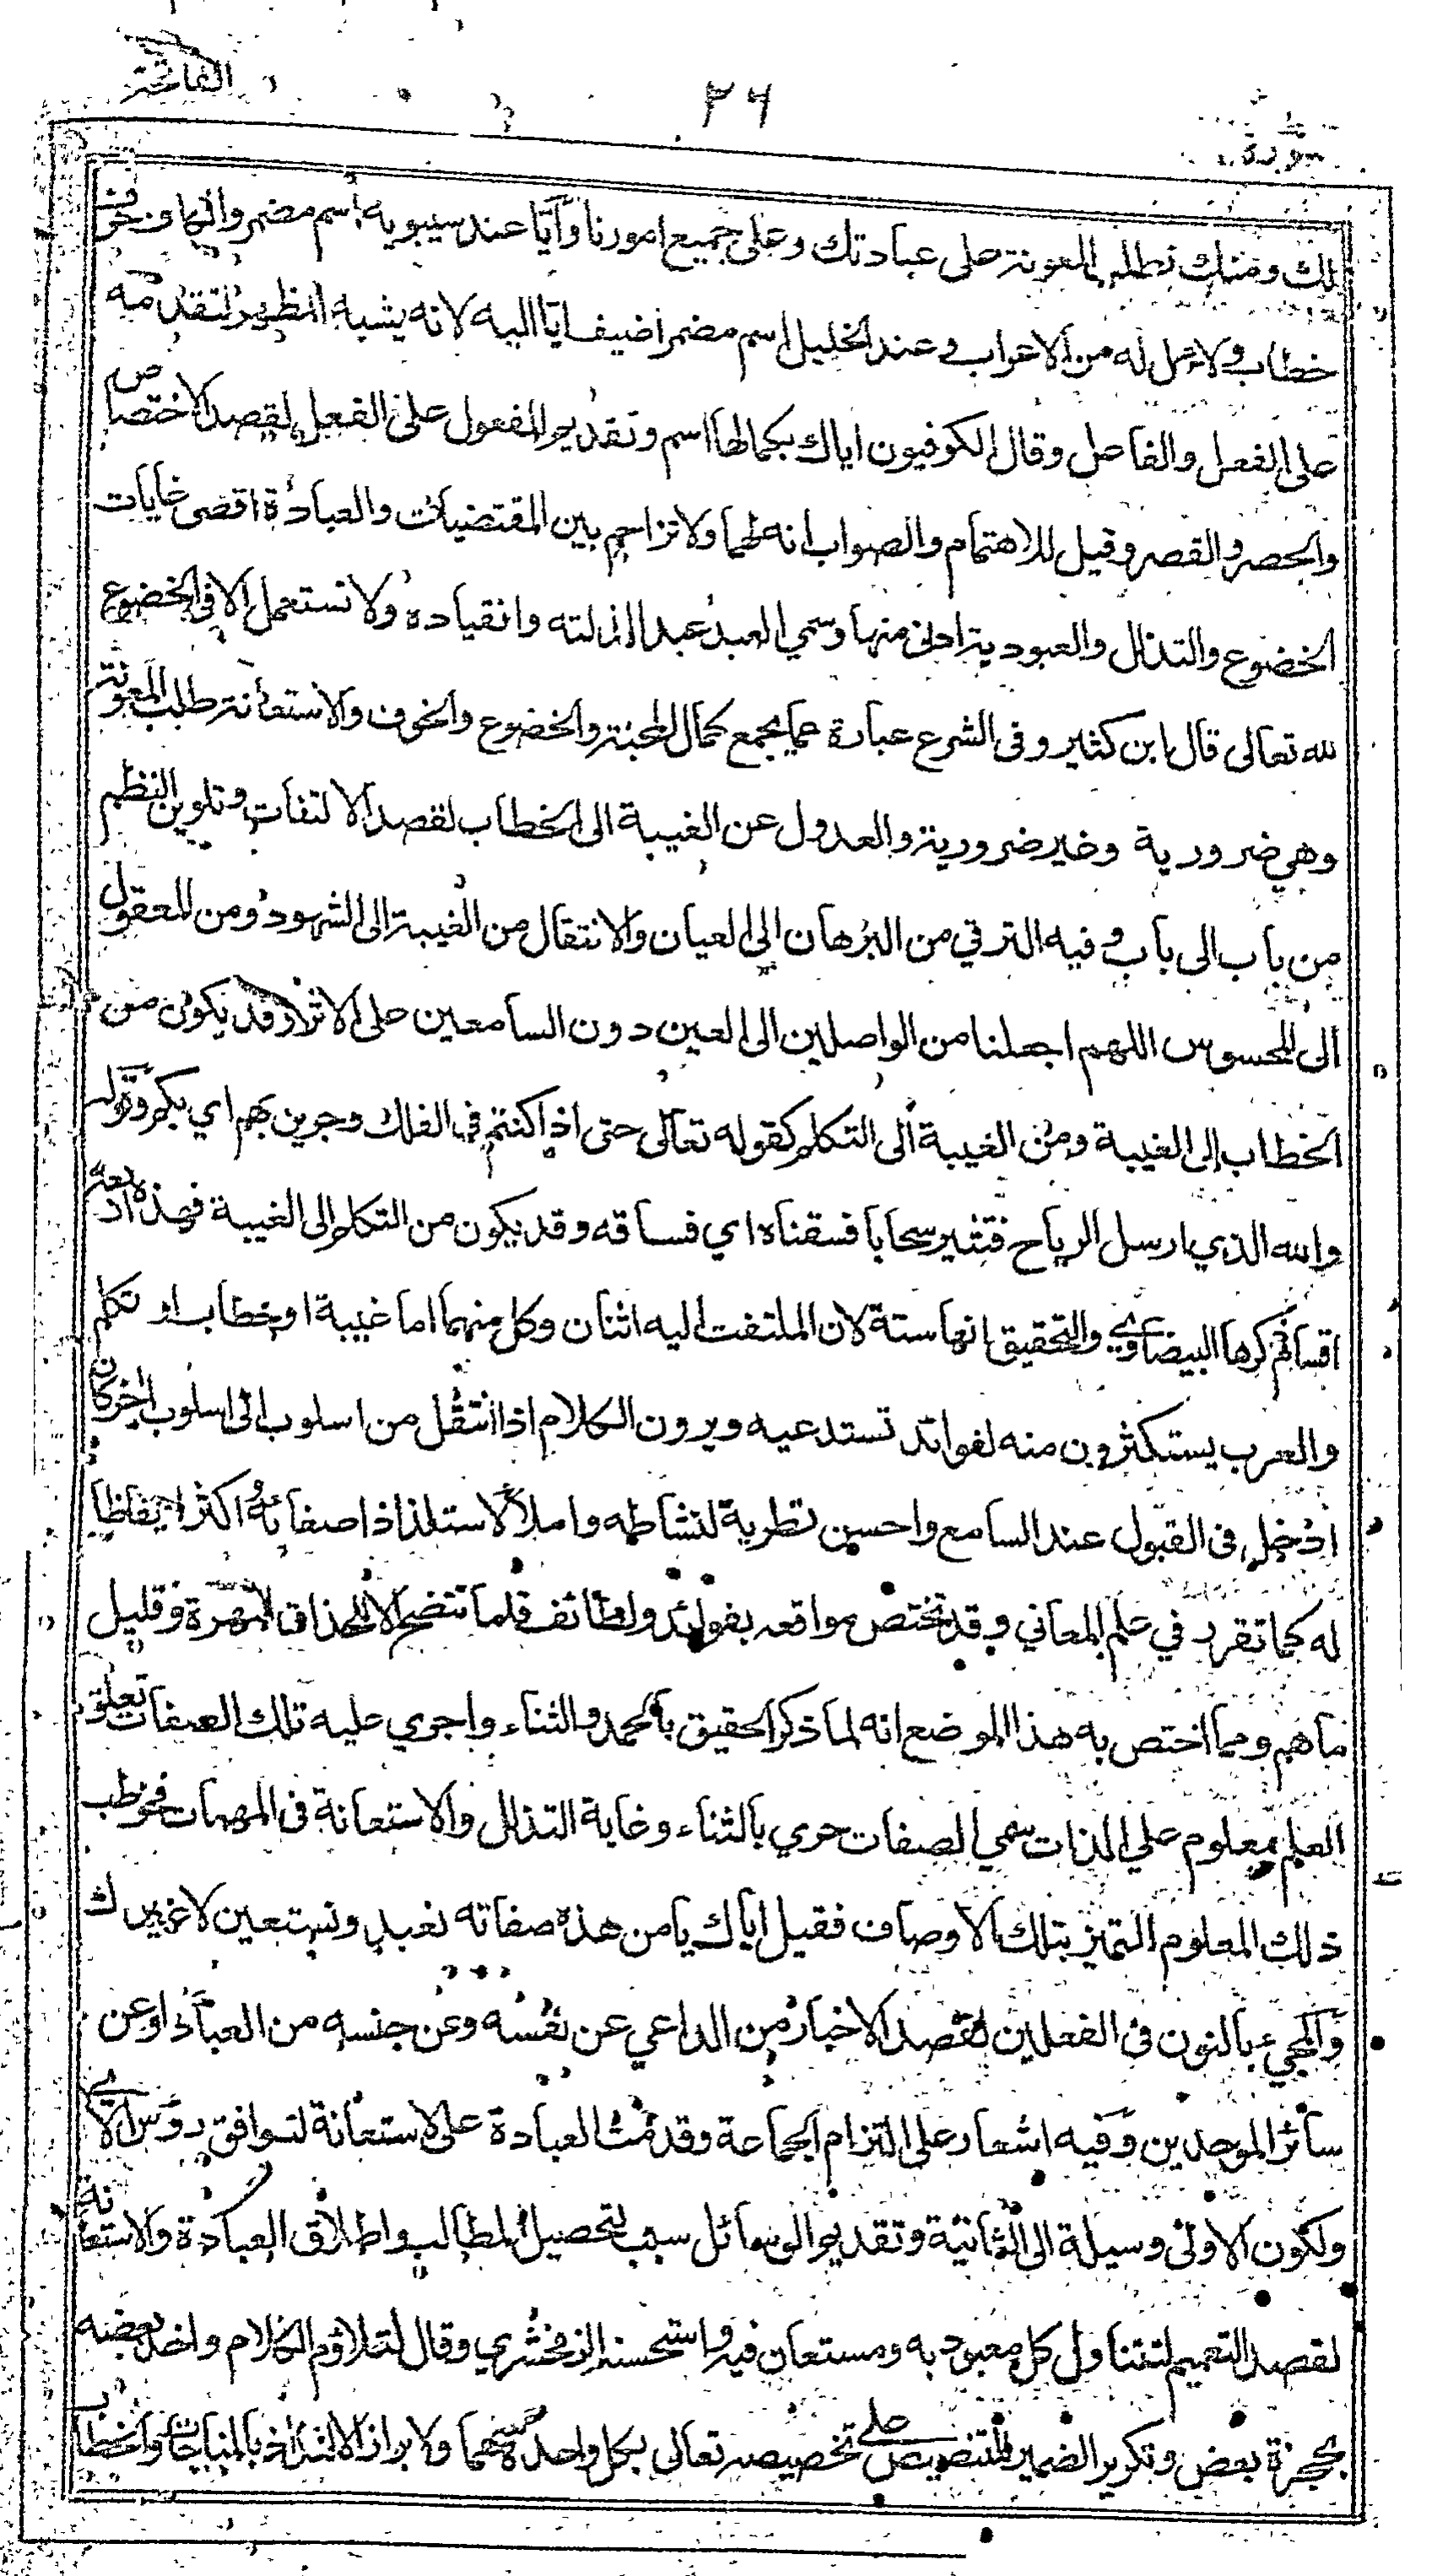 سورة ٣٦ الفاتحة
لك ومنك نطلب المعونة على عبادتك وعلى جميع امورنا وايّا عند سيبويه اسم مضمر والكاف حرف
خطاب ولا محل له من الاعراب وعند الخليل اسم مضمر اضيف ايا اليه لانه يشبه المظهر لتقدمه
على الفعل والفاعل وقال الكوفيون اياك بكمالها اسم وتقديم المفعول على الفعل لقصد الاختصاص
والحصر والقصر وقيل للاهتمام والصواب انه لهما ولا تزاحم بين المقتضيات والعبادة اقصى غايات
الخضوع والتذلل والعبودية ادنى منها وسمي العبد عبدا لذلته وانقياده ولا تستعمل الا في الخضوع
لله تعالى قال ابن كثير وفى الشرع عبارة عما يجمع كمال المحبة والخضوع والخوف والاستعانة طلب المعونة
وهي ضرورية وغير ضرورية والعدول عن الغيبة الى الخطاب لقصد الالتفات وتلوين النظم
من باب الى باب وفيه الترقي من البرهان الى العيان والانتقال من الغيبة الى الشهود ومن المعقول
الى المحسوس اللهم اجعلنا من الواصلين الى العين دون السامعين على الاثر وقد يكون من
الخطاب الى الغيبة ومن الغيبة الى التكلم كقوله تعالى حتى اذا كنتم فى الفلك وجرين بهم اي بكم وقوله
والله الذي ارسل الرياح فتثير سحابا فسقناه اي فساقه وقد يكون من التكلم الى الغيبة فهذه اربعة
اقسام ذكرها البيضاوي والتحقيق انها ستة لان الملتفت اليه اثنان وكل منهما اما غيبة او خطاب او تكلم
والعرب يستكثرون منه لفوائد تستدعيه ويرون الكلام اذا انتقل من اسلوب الى اسلوب اخر كان
ادخل فى القبول عند السامع واحسن تطرية لنشاطه واملأ لاستلذاذ اصغائه اكثر ايقاظا
له كما تقرر في علم المعاني وقد تختص مواقعه بفوائد ولطائف قلما تتضح الا للحذاق المهرة وقليل
ما هم ومما اختص به هذا الموضع انه لما ذكر الحقيق بالحمد والثناء واجري عليه تلك الصفات تعلق
العلم بمعلوم على الذات سمي الصفات حري بالثناء وغاية التذلل والاستعانة فى المهمات فخوطب
ذلك المعلوم المتميز بتلك الاوصاف فقيل اياك يا من هذه صفاته نعبد ونستعين لا غيرك
والمجيء بالنون فى الفعلين لقصد الاخبار من الداعي عن نفسه وعن جنسه من العباد او عن
سائر الموحدين وفيه اشعار على التزام الجماعة وقدمت العبادة على الاستعانة لتوافق رؤس الآي
ولكون الاولى وسيلة الى الثانية وتقديم الوسائل سبب لتحصيل المطالب واطلاق العبادة والاستعانة
لقصد التعميم لتتناول كل معبود به ومستعان فيه واستحسنه الزمخشري وقال لتلاؤم الكلام واخذ بعضه
بحجزة بعض وتكرير الضمير للتنصيص على تخصيصه تعالى بكل واحدة منهما ولابراز الالتذاذ بالمناجات والخطاب